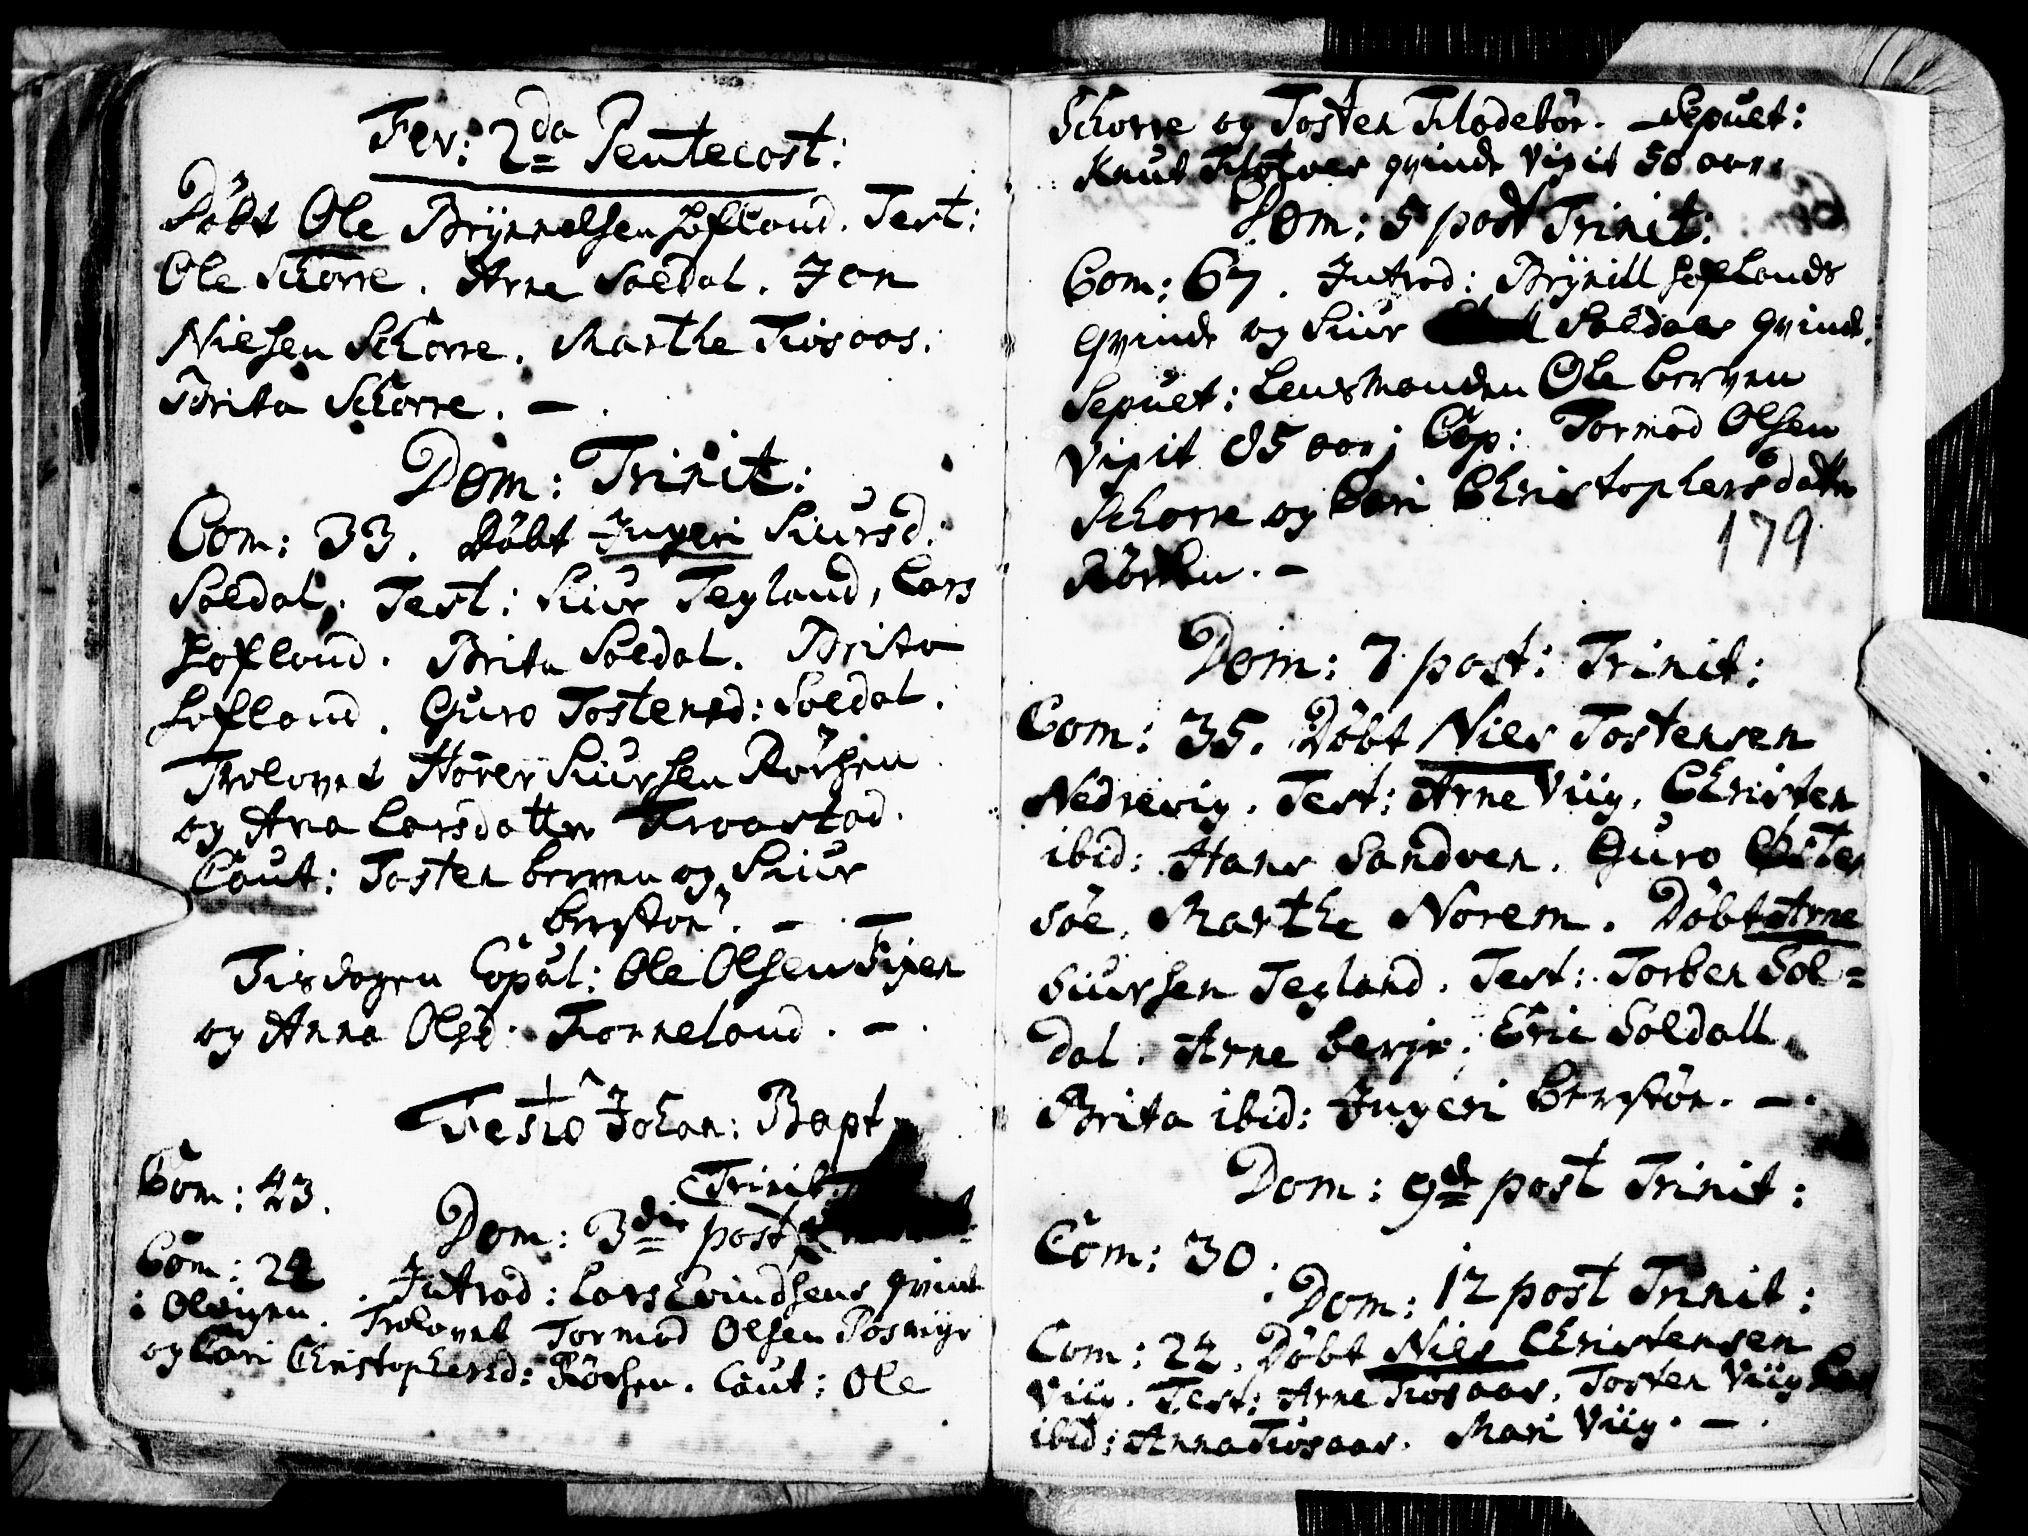 Fer: 2da Pentecost:
Döbt Ole Brÿnnelsen Lofland. Test:
Ole Schorre. Arne Soldal. Jon
Nielsen Schorre. Marthe Tiosaas.
Brita Schorre. —.
Dom: Trinit:
Com: 33. Döbt Ingeri Siursd:
Soldal. Test: Siur Tegland, Lars
Lofland. Brita Soldal. Brita
Lofland. Guro Tostensd: Soldal.
Trolovet Siursen
og Ana Larsdatter Traastad.
Caut: Tosten Berven og Siur
Berstøn. —.
Tisdagen Copul: Ole Olsen Fixen
og Anna Olsd. Tonneland. —.
Festo Johan: Bapt
Com: 43.
Trinit.
Dom: 3die post
Com: 24. Introd: Lars Evindsens qvinde
i Trolovet Tormod Olsen
og Cari Christophersd: Caut: Ole
Schorre og Tosten Flodebøn. Sepult:
Knud qvinde vixit 50 aar.
Dom: 5 post Trinit:
Com: 67. Introd: Brÿnill Loflands
qvinde og Siur Soldals qvinde.
Sepult: Lensmanden Ole Berven
vixit 85 aar; Cop: Tormod Olsen
Schorre og Cari Christophersdatter
179
Dom: 7 post: Trinit:
Com: 35. Döbt Niels Tostensen
Nedrevig. Test: Arne Viig, Christen
ibid: Hans Sandven. Guro
söe. Marthe Norem. Döbt Arne
Siursen Tegland. Test: Torben Sol=
dal. Arne Berge, Eric Soldall
Brita ibid: Ingeri Berstøn. —.
Dom: 9de post Trinit:
Com: 30.
Dom: 12 post Trinit:
Com: 22. Döbt Niels Christensen
Viig. Test: Arne Tiosaas. Tosten Viig
ibid: Anna Tiosaas. Mari Viig. —.